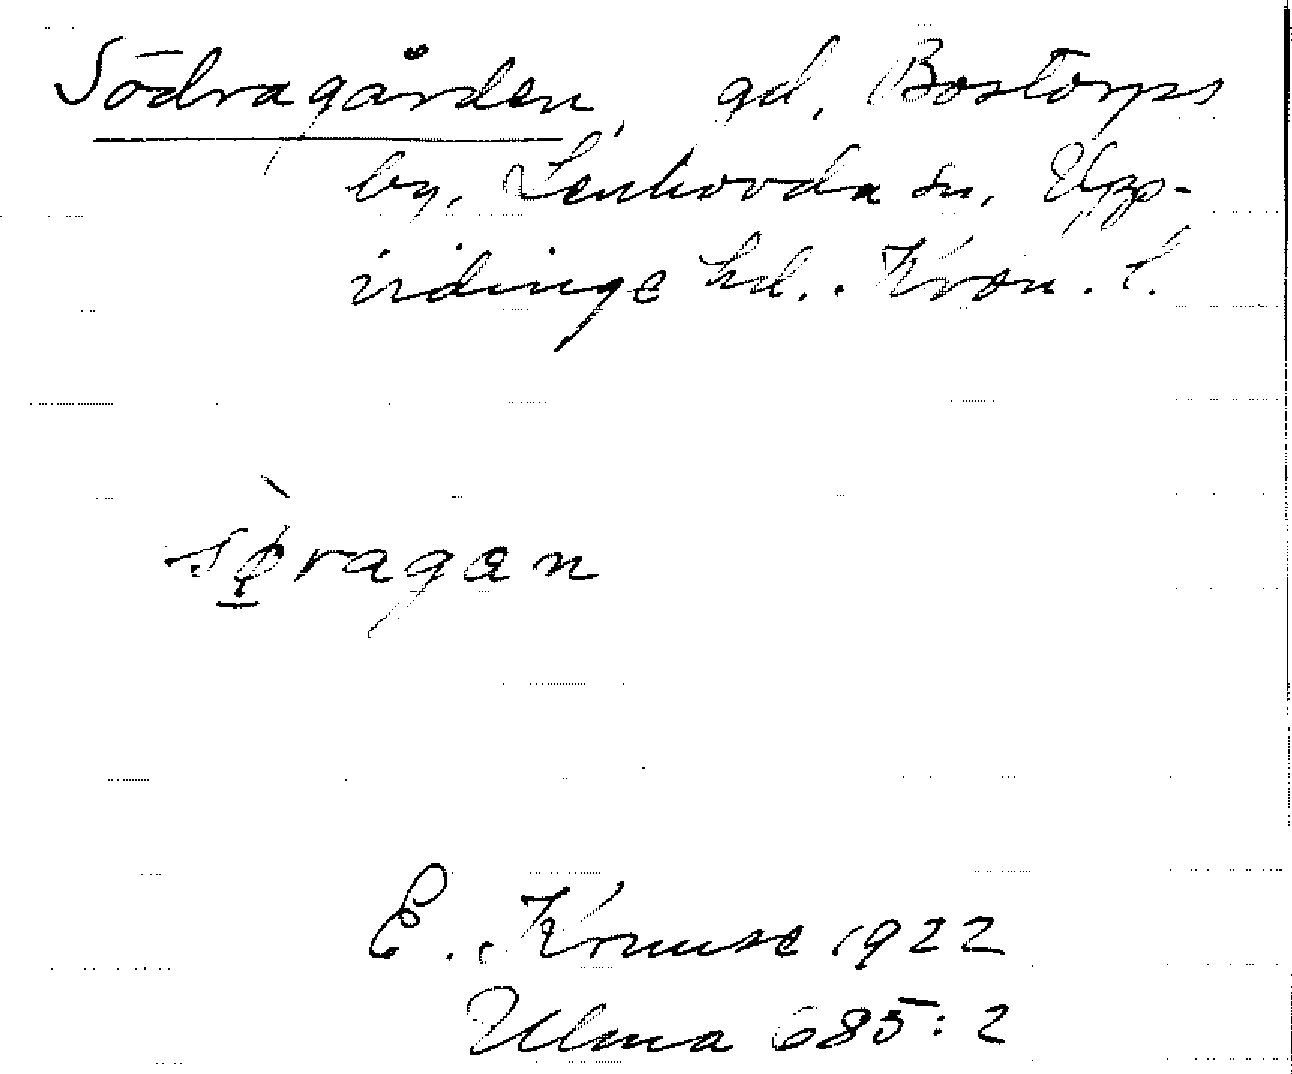 Södragården, gd, Bostorps
by, Lenhovda sn, Upp-
vidinge hd. Kron. l.
sø̀ragan
E. Kruuse 1922
Ulma 685:2